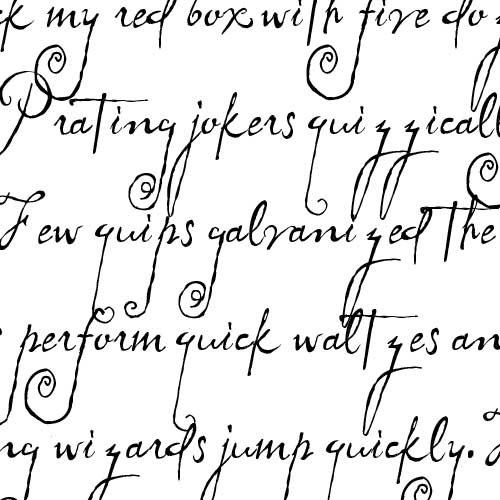 ck my red box with five do
Prating jokers quizzicall
Few quips galvanized the
perform quick waltzes an
ng wizards jump quickly.